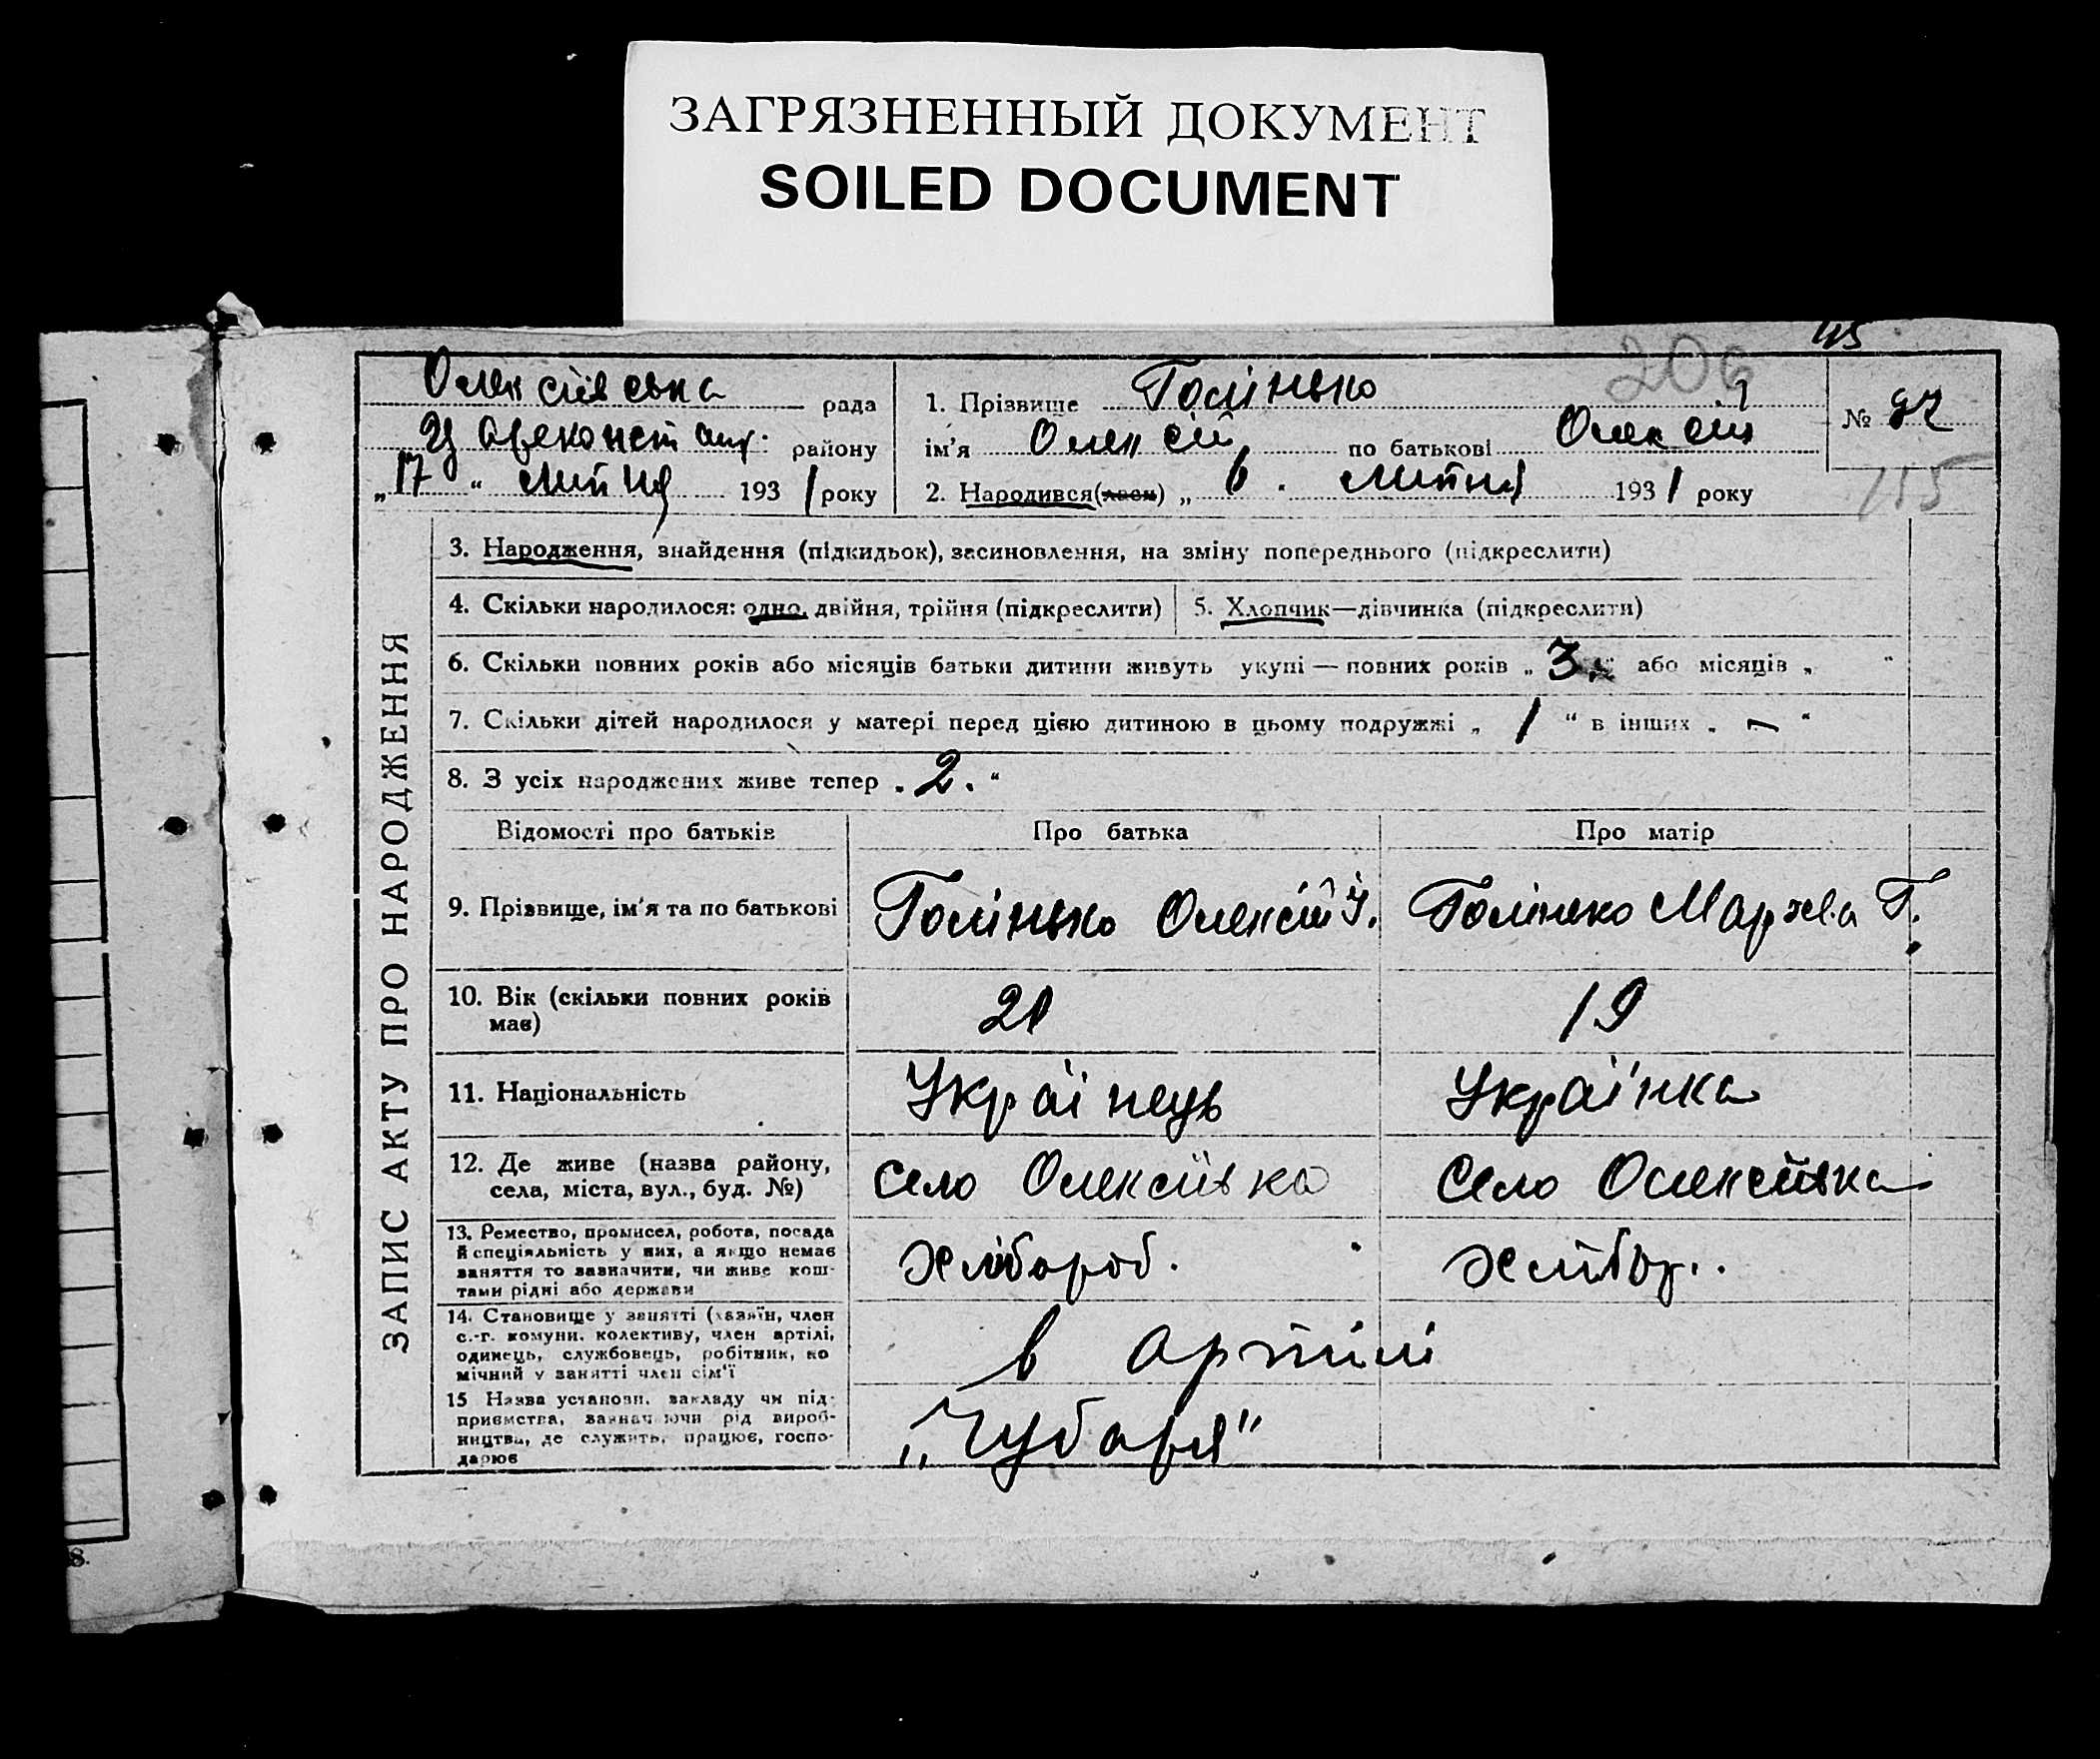 ЗАГРЯЗНЕННЫЙ ДОКУМЕНТ
SOILED DOCUMENT
45
206
Олексіївська рада
району
„17“ липня 1931 року
1. Прізвище Голінько
ім'я Олексій по батькові Олексій
2. Народився(лась) „6. липня 1931 року
№ 97
115
ЗАПИС АКТУ ПРО НАРОДЖЕННЯ
3. Народження, знайдення (підкидьок), засиновлення, на зміну попереднього (підкреслити)
4. Скільки народилося: одно, двійня, трійня (підкреслити)
5. Хлопчик—дівчинка (підкреслити)
6. Скільки повних років або місяців батьки дитини живуть укупі — повних років „ 3 “ або місяців „ “
7. Скільки дітей народилося у матері перед цією дитиною в цьому подружжі „ 1 “ в інших „ — “
8. З усіх народжених живе тепер „ 2. “
Відомості про батьків Про батька Про матір
9. Прізвище, ім'я та по батькові
Голінько Олексій У.
Голінько Марфа Г.
10. Вік (скільки повних років
має)
21
19
11. Національність
Українець
Українка
12. Де живе (назва району,
села, міста, вул., буд. №)
село Олексіївка
село Олексіївка
13. Ремество, промисел, робота, посада
й спеціяльність у них, а якщо немає
заняття то зазначити, чи живе кош-
тами рідні або держави
Хлібороб.
Хлібор..
14. Становище у занятті (хазяїн, член
с.-г. комуни, колективу, член артілі,
одинець, службовець, робітник, по
мічний у занятті член сім'ї
в артілі
15 Назва установи, закладу чи під-
приємства, зазначаючи рід вироб-
ництва, де служить, працює, госпо-
дарює
„Чубаря“
8.